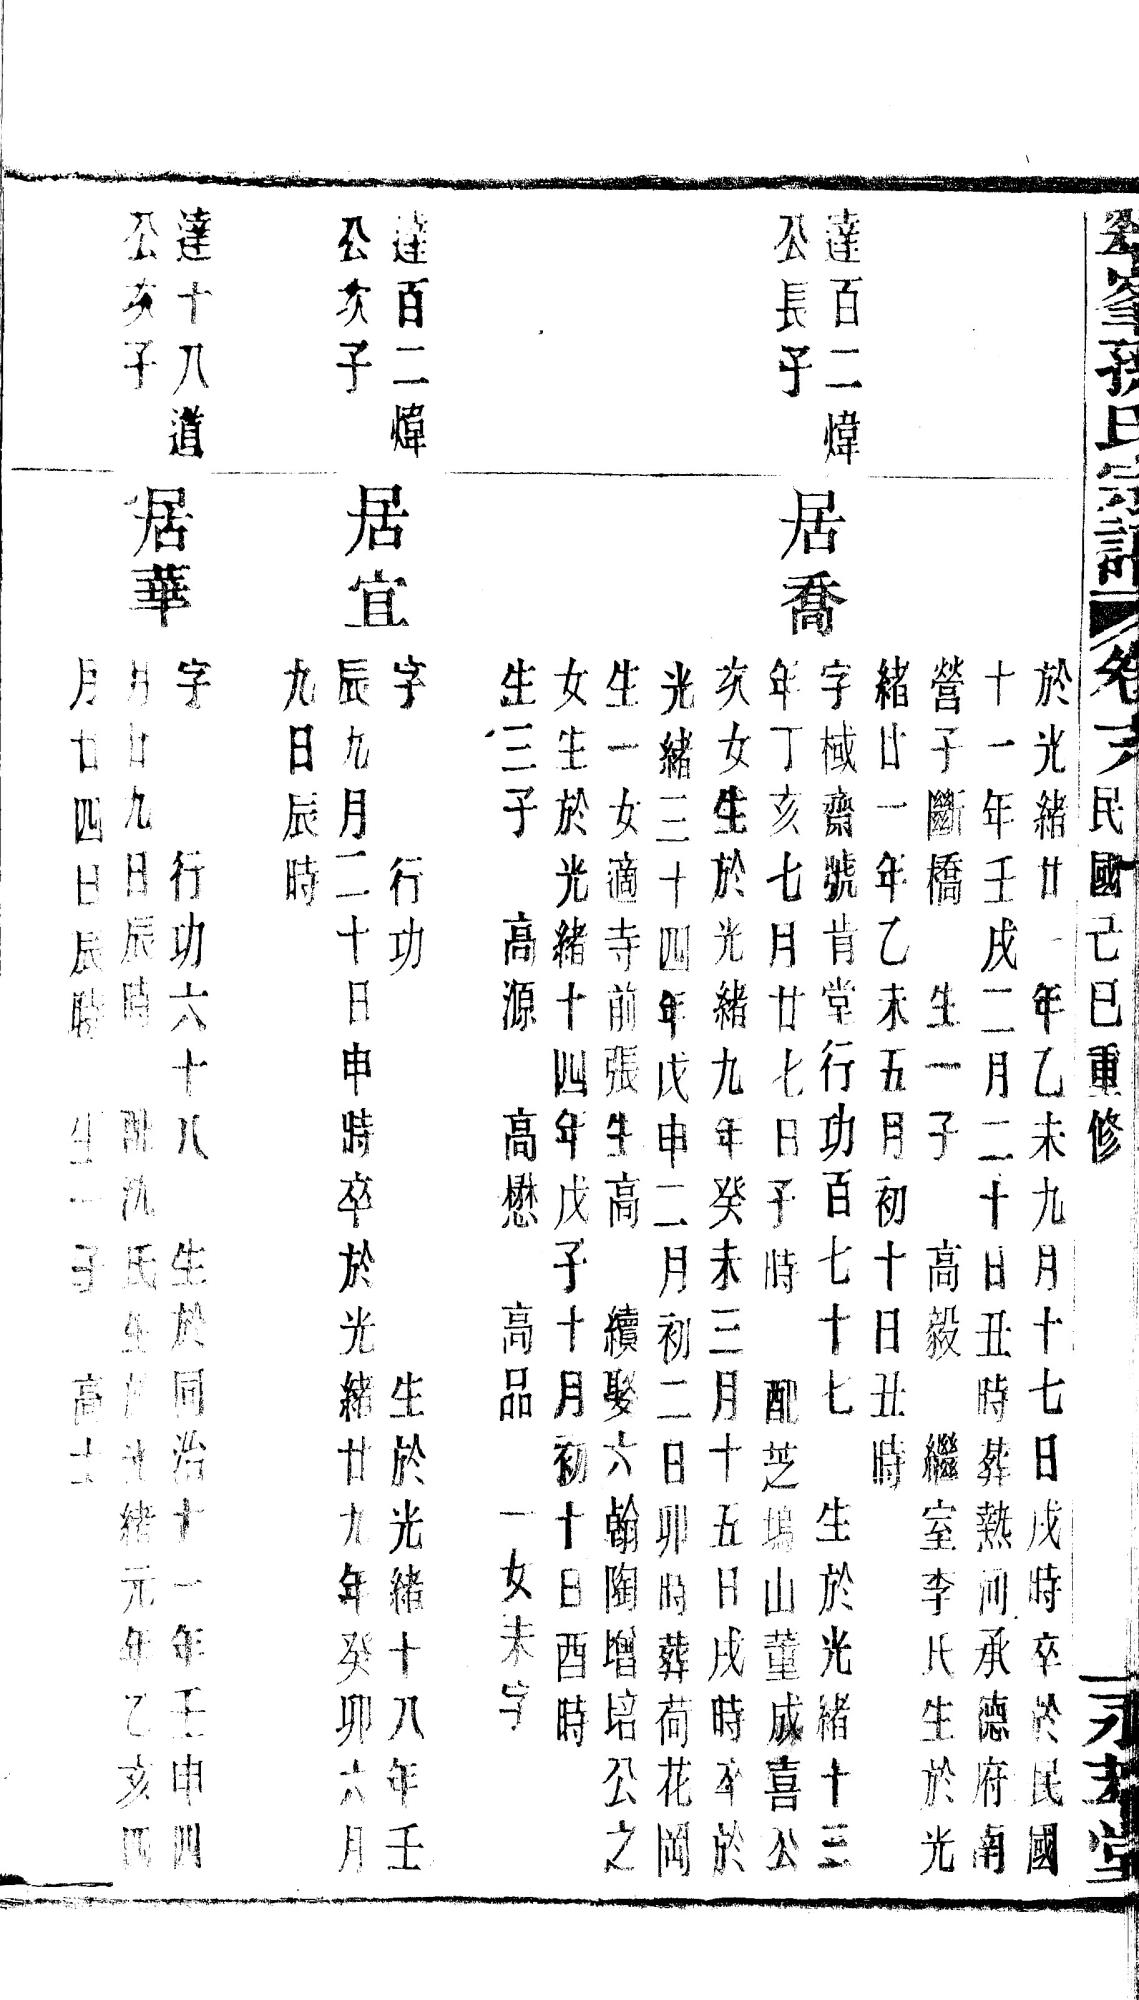 峯孫氏宗譜 卷 民國己巳重修
堂
於光緒廿一年乙未九月十七日戌時卒於民國
十一年壬戌二月二十日丑時葬熱河承德府南
營子斷橋 生一子 高毅 繼室李氏生於光
緒廿一年乙未五月初十日丑時
達百二煒
公長子
居喬
字棫齋號肯堂行功百七十七 生於光緒十三
年丁亥七月廿七日子時 配芝塢山董成喜公
次女生於光緒九年癸未三月十五日戌時卒於
光緒三十四年戊申二月初二日卯時葬荷花岡
生一女適寺前張生高 續娶六翰陶增培公之
女生於光緒十四年戊子十月初十日酉時
生三子 高源 高懋 高品 一女未字
達百二煒
公次子
居宜
字 行功 生於光緒十八年壬
辰九月二十日申時卒於光緒廿九年癸卯六月
九日辰時
達十八道
公次子
居華
字 行功六十八 生於同治十一年壬申四
月廿九日辰時 配沈氏生於光緒元年乙亥四
月廿四日辰時 生一子 高士